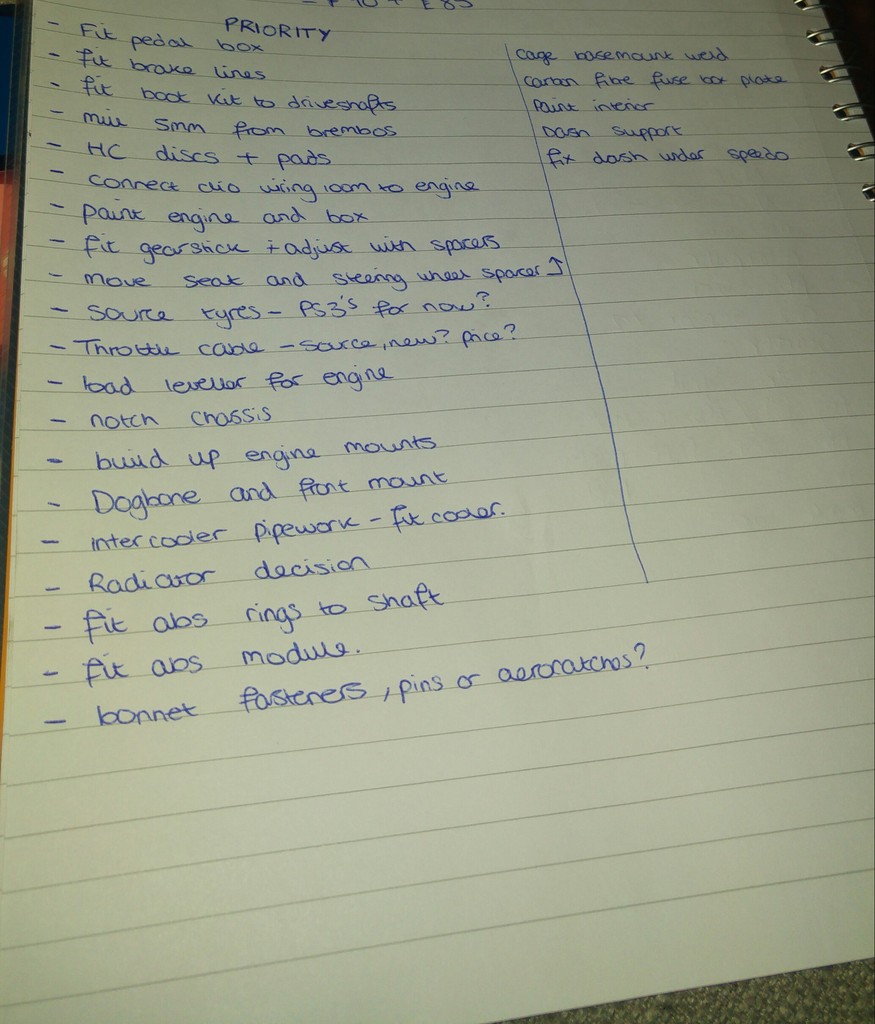 PRIORITY
- Fit pedal box
- fit brake lines
- fit boot kit to driveshafts
- mill 5mm from brembos
- HC discs + pads
- connect clio wiring loom to engine
- paint engine and box
- fit gearstick + adjust with spacers
- move seat and steering wheel spacer
- source tyres - PS3's for now?
- Throttle cable - source, new? price?
- load leveller for engine
- notch chassis
- build up engine mounts
- Dogbone and front mount
- intercooler pipework - fit cooler.
- Radiator decision
- fit abs rings to shaft
- fit abs module.
- bonnet fasteners, pins or aerocatches?
cage basemount weld
carbon fibre fuse box plate
Paint interior
Dash support
fix dash under speedo